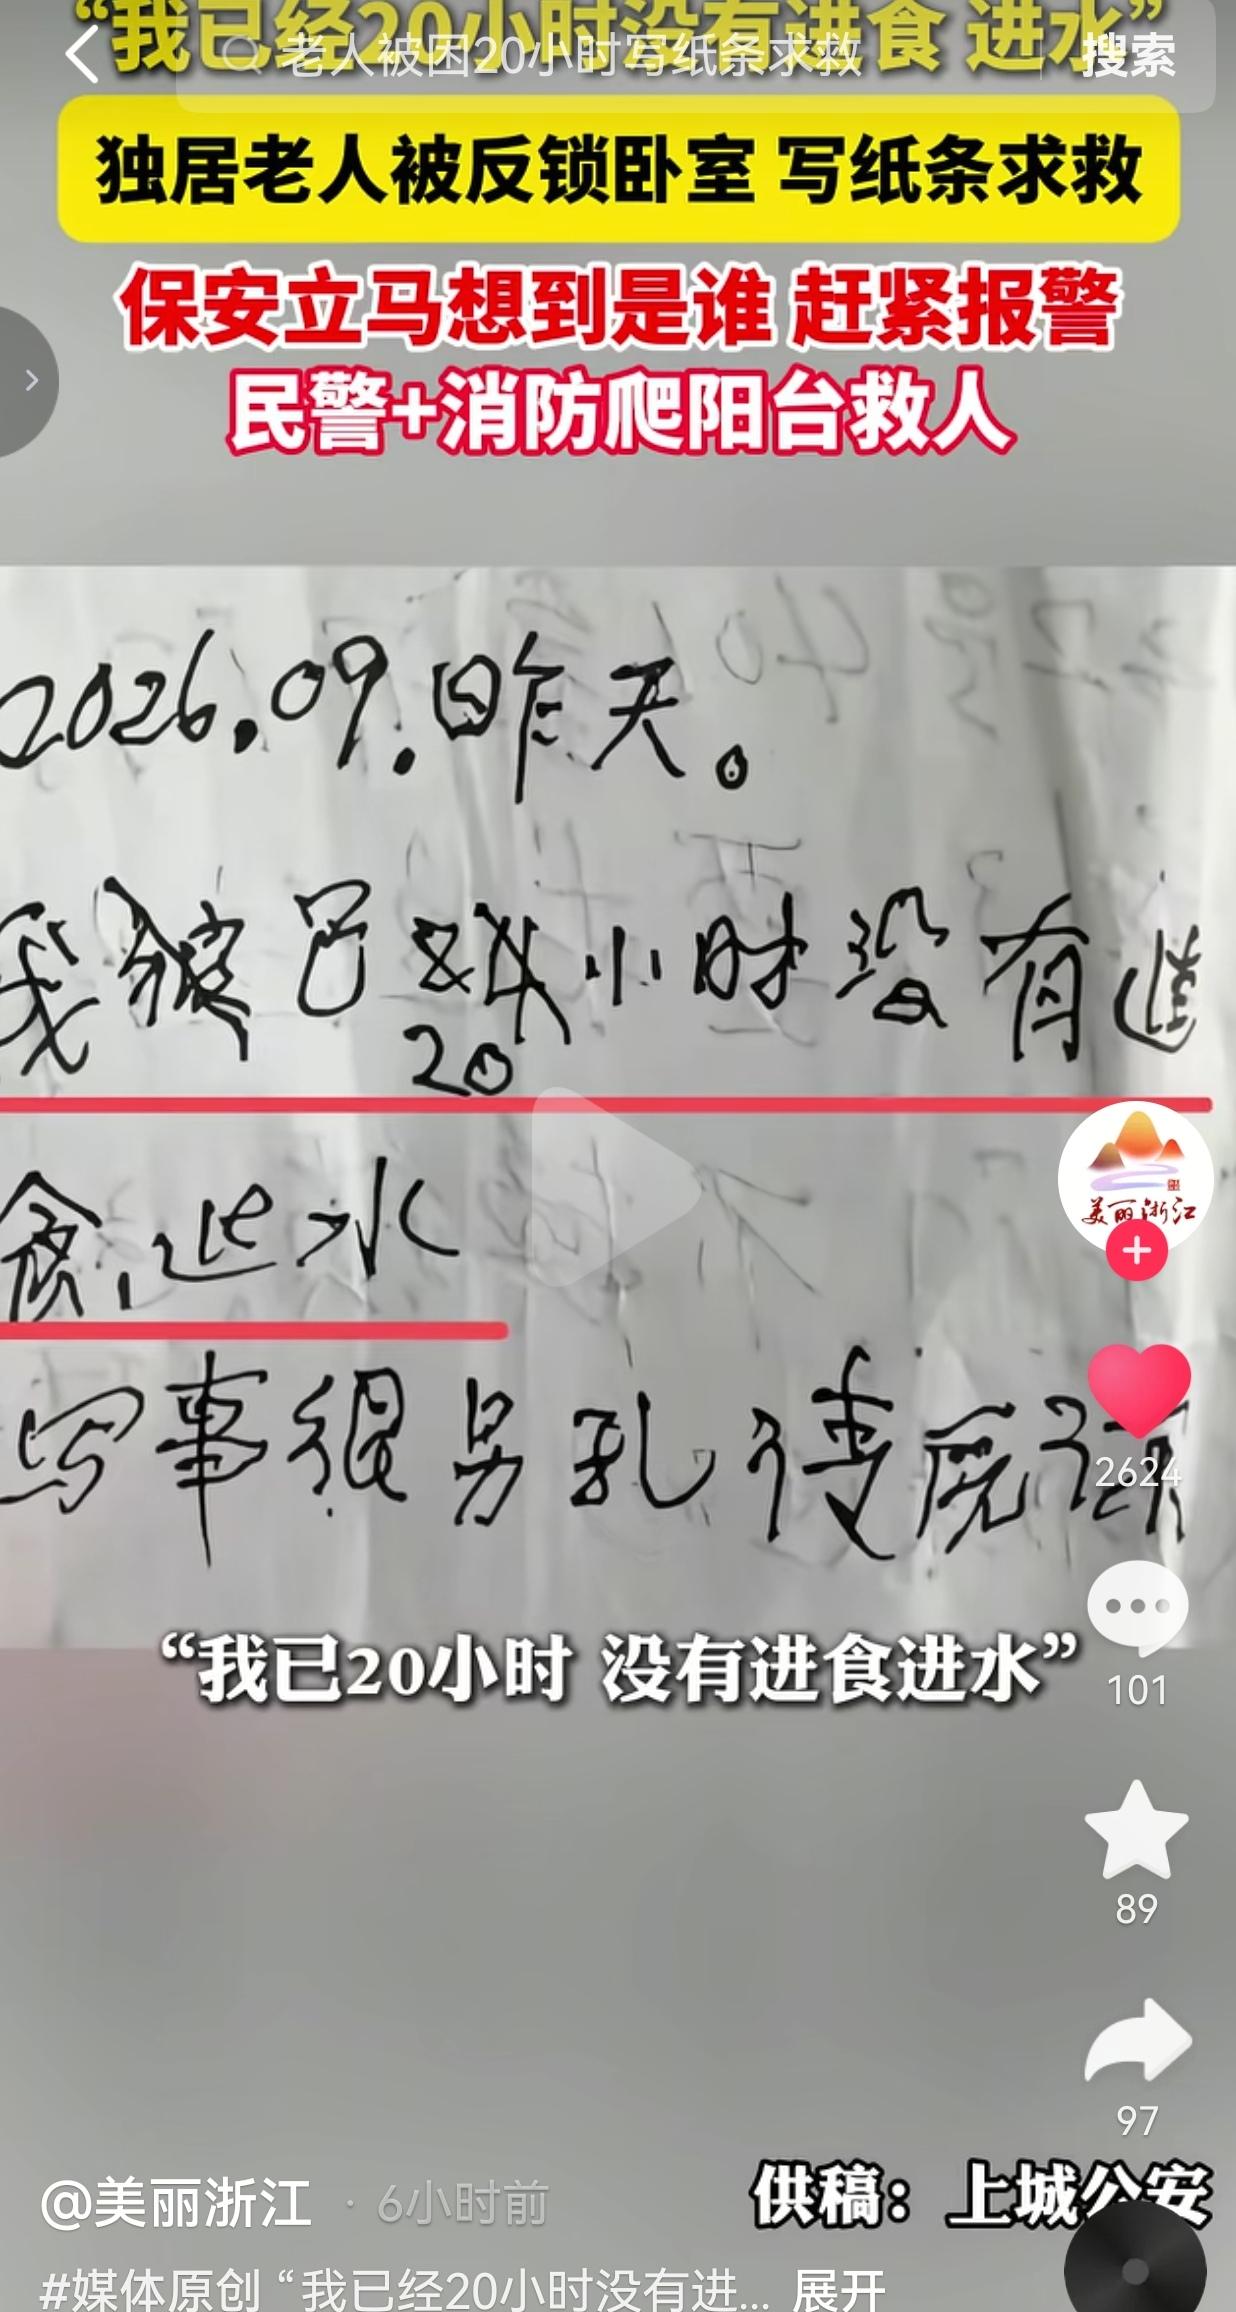 “我已经20小时没有进食 进水”
老人被困20小时写纸条求救 搜索
独居老人被反锁卧室 写纸条求救
保安立马想到是谁 赶紧报警
民警+消防爬阳台救人
2026.09.昨天。
我被 小时没有进
20
食,进水
写事很 乱
美丽浙江
2624
“我已20小时 没有进食进水”
101
89
97
@美丽浙江 · 6小时前
供稿：上城公安
#媒体原创 “我已经20小时没有进... 展开